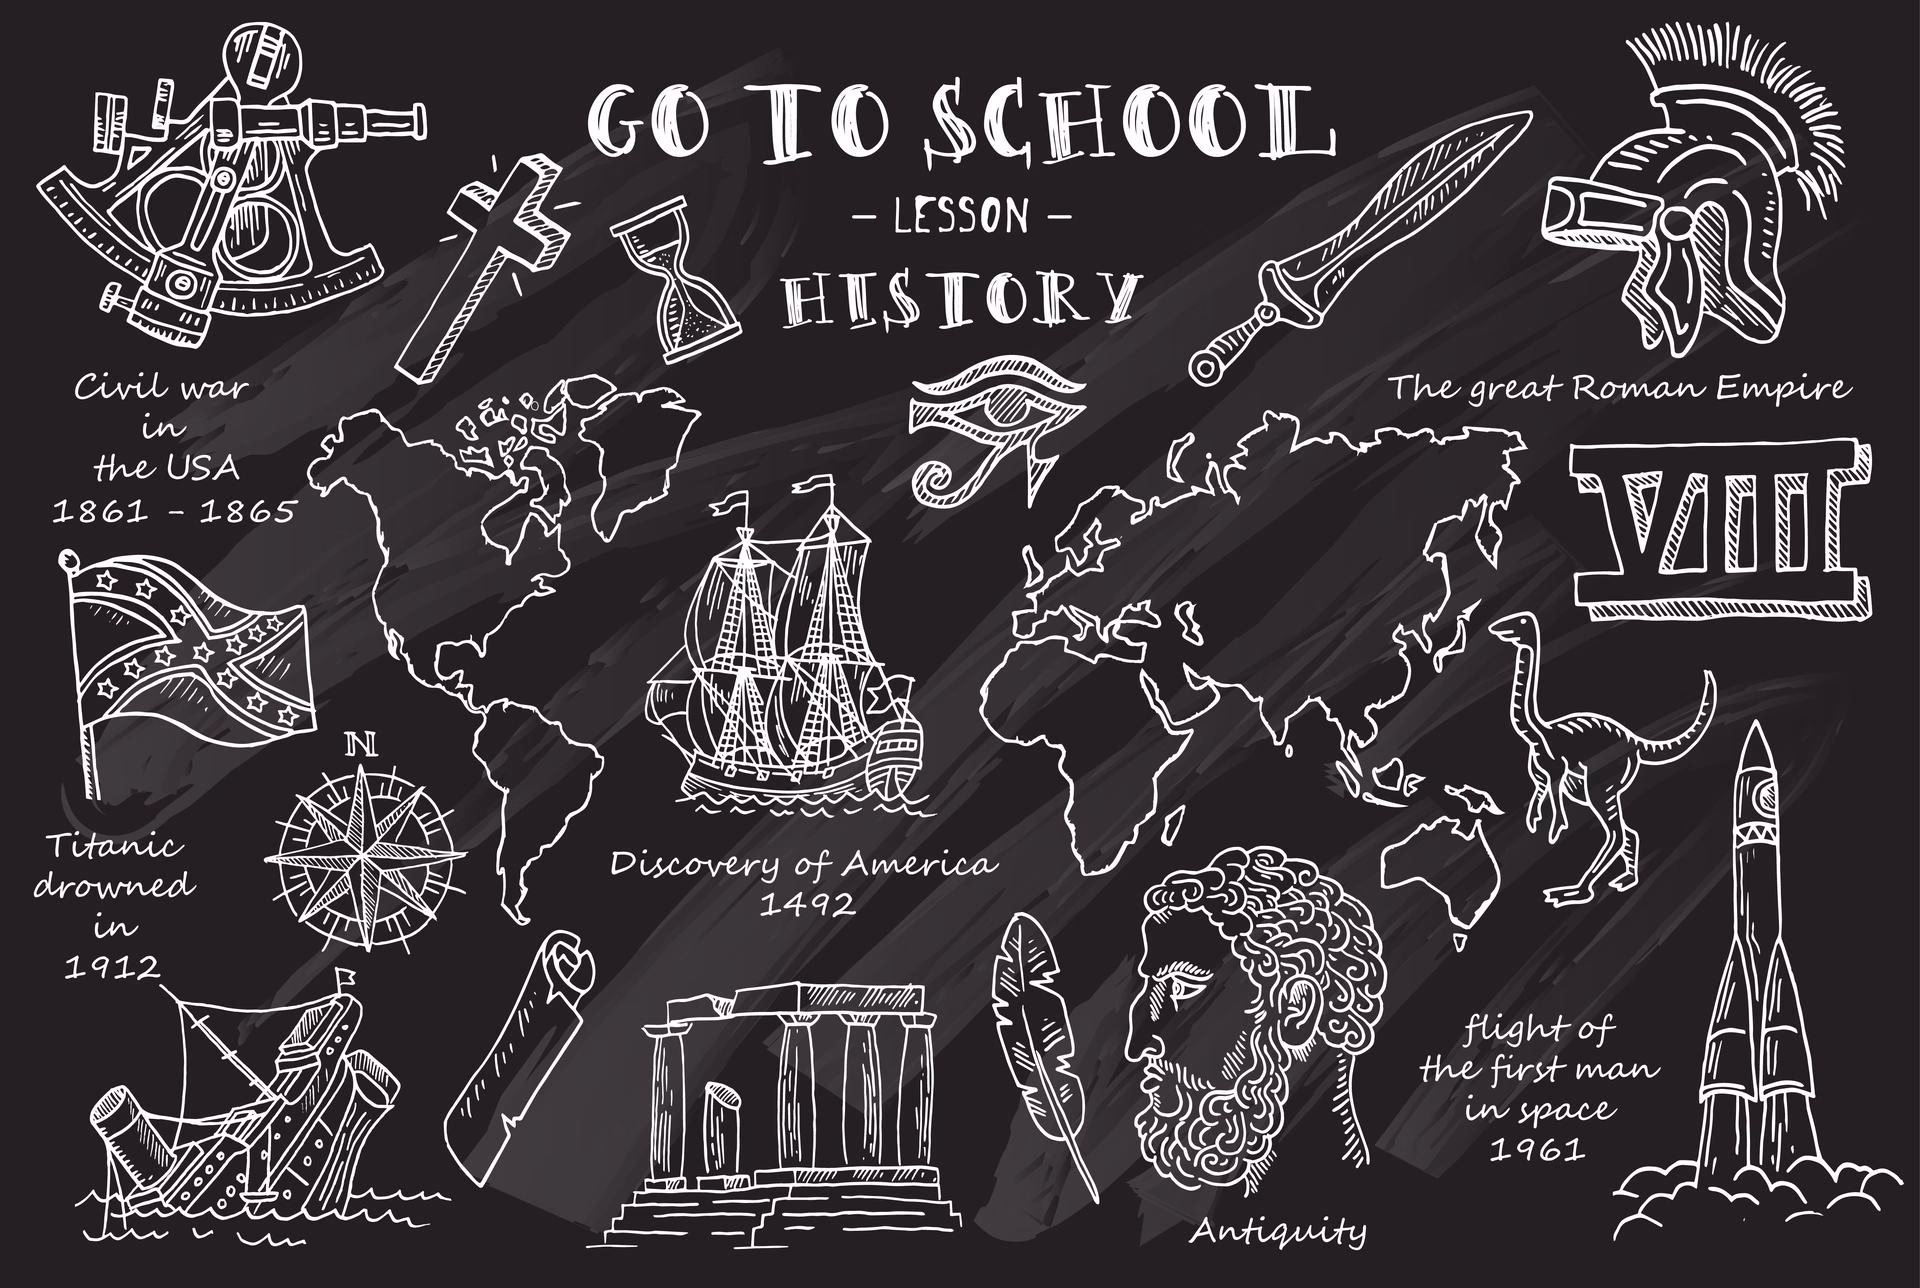 GO TO SCHOOL
– LESSON –
HISTORY
Civil war
in
the USA
1861 – 1865
The great Roman Empire
VIII
N
Titanic
drowned
in
1912
Discovery of America
1492
flight of
the first man
in space
1961
Antiquity